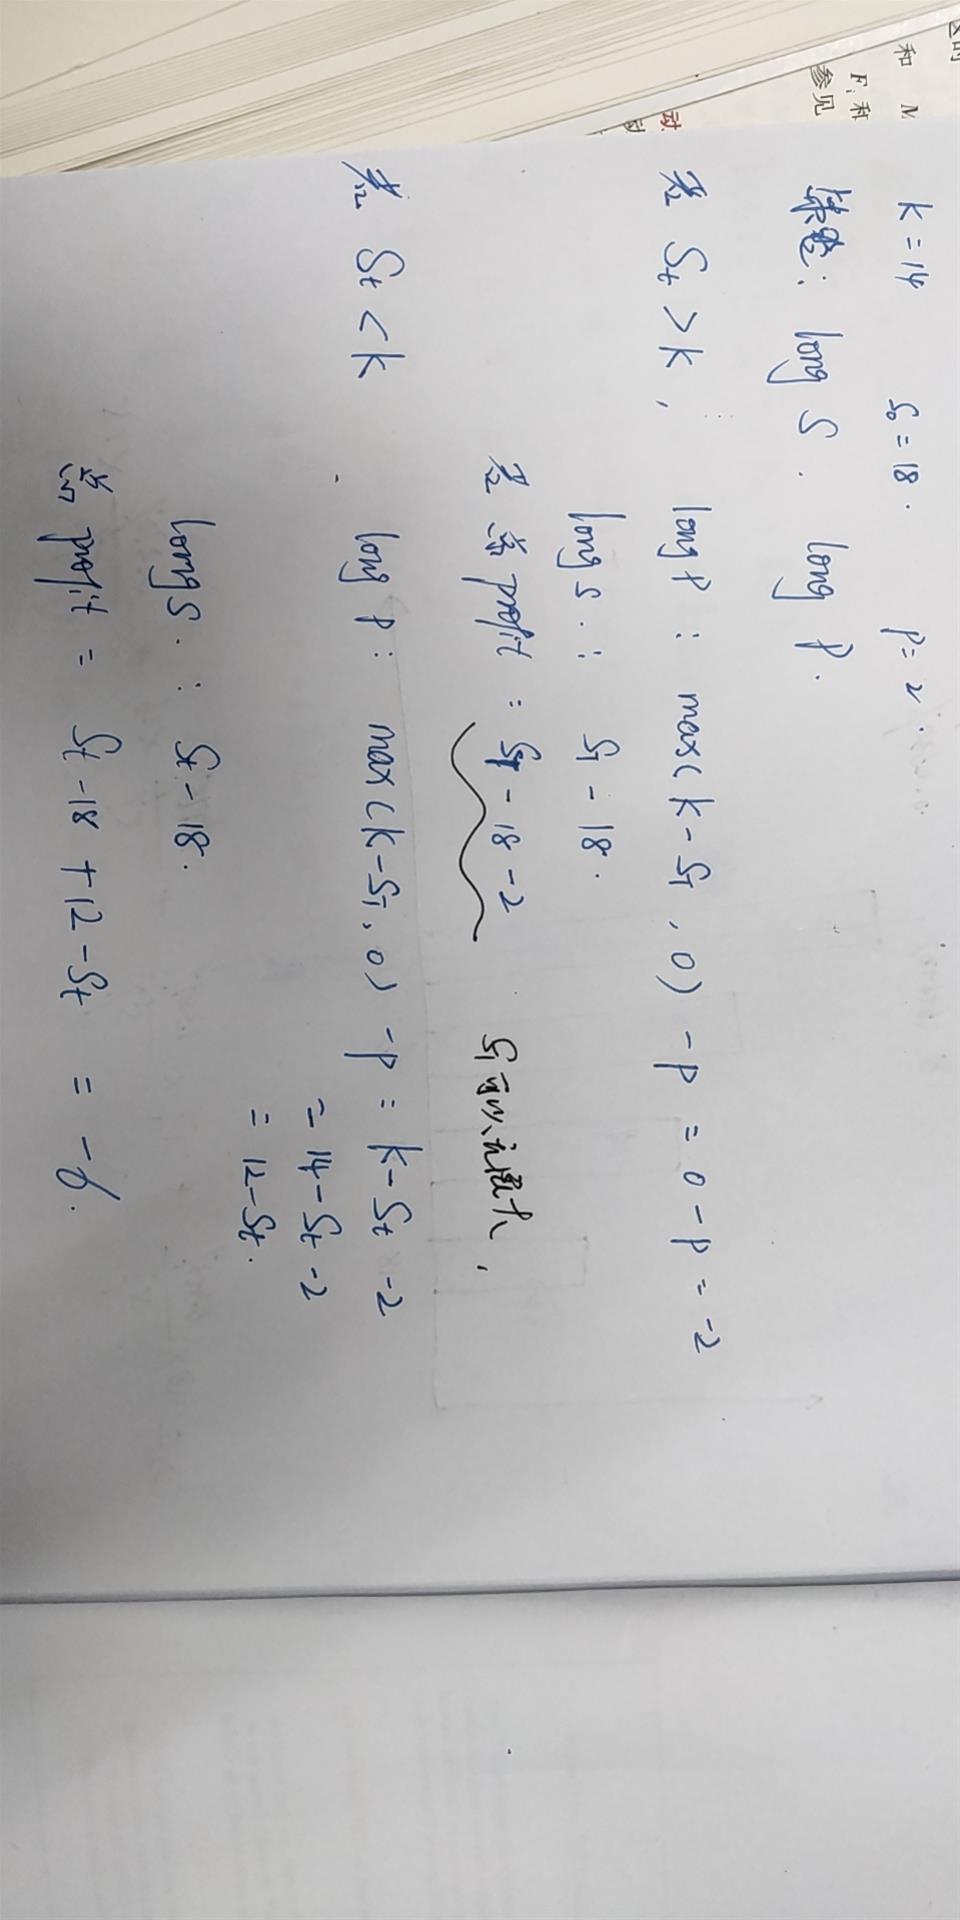 区的
和 M
F₁和
参见
动
动
K=14 S₀=18. P=2.
: long S. long P.
若 Sₜ>K, long P: max(K-S_T, 0) -P = 0-P = -2
long S.: S_T-18.
profit: S_T-18-2 S_T可以无限大,
若 Sₜ<K long P: max(K-S_T, 0) -P = K-Sₜ-2
= 14-Sₜ-2
= 12-Sₜ.
long S.: Sₜ-18.
profit = Sₜ-18+12-Sₜ = -6.